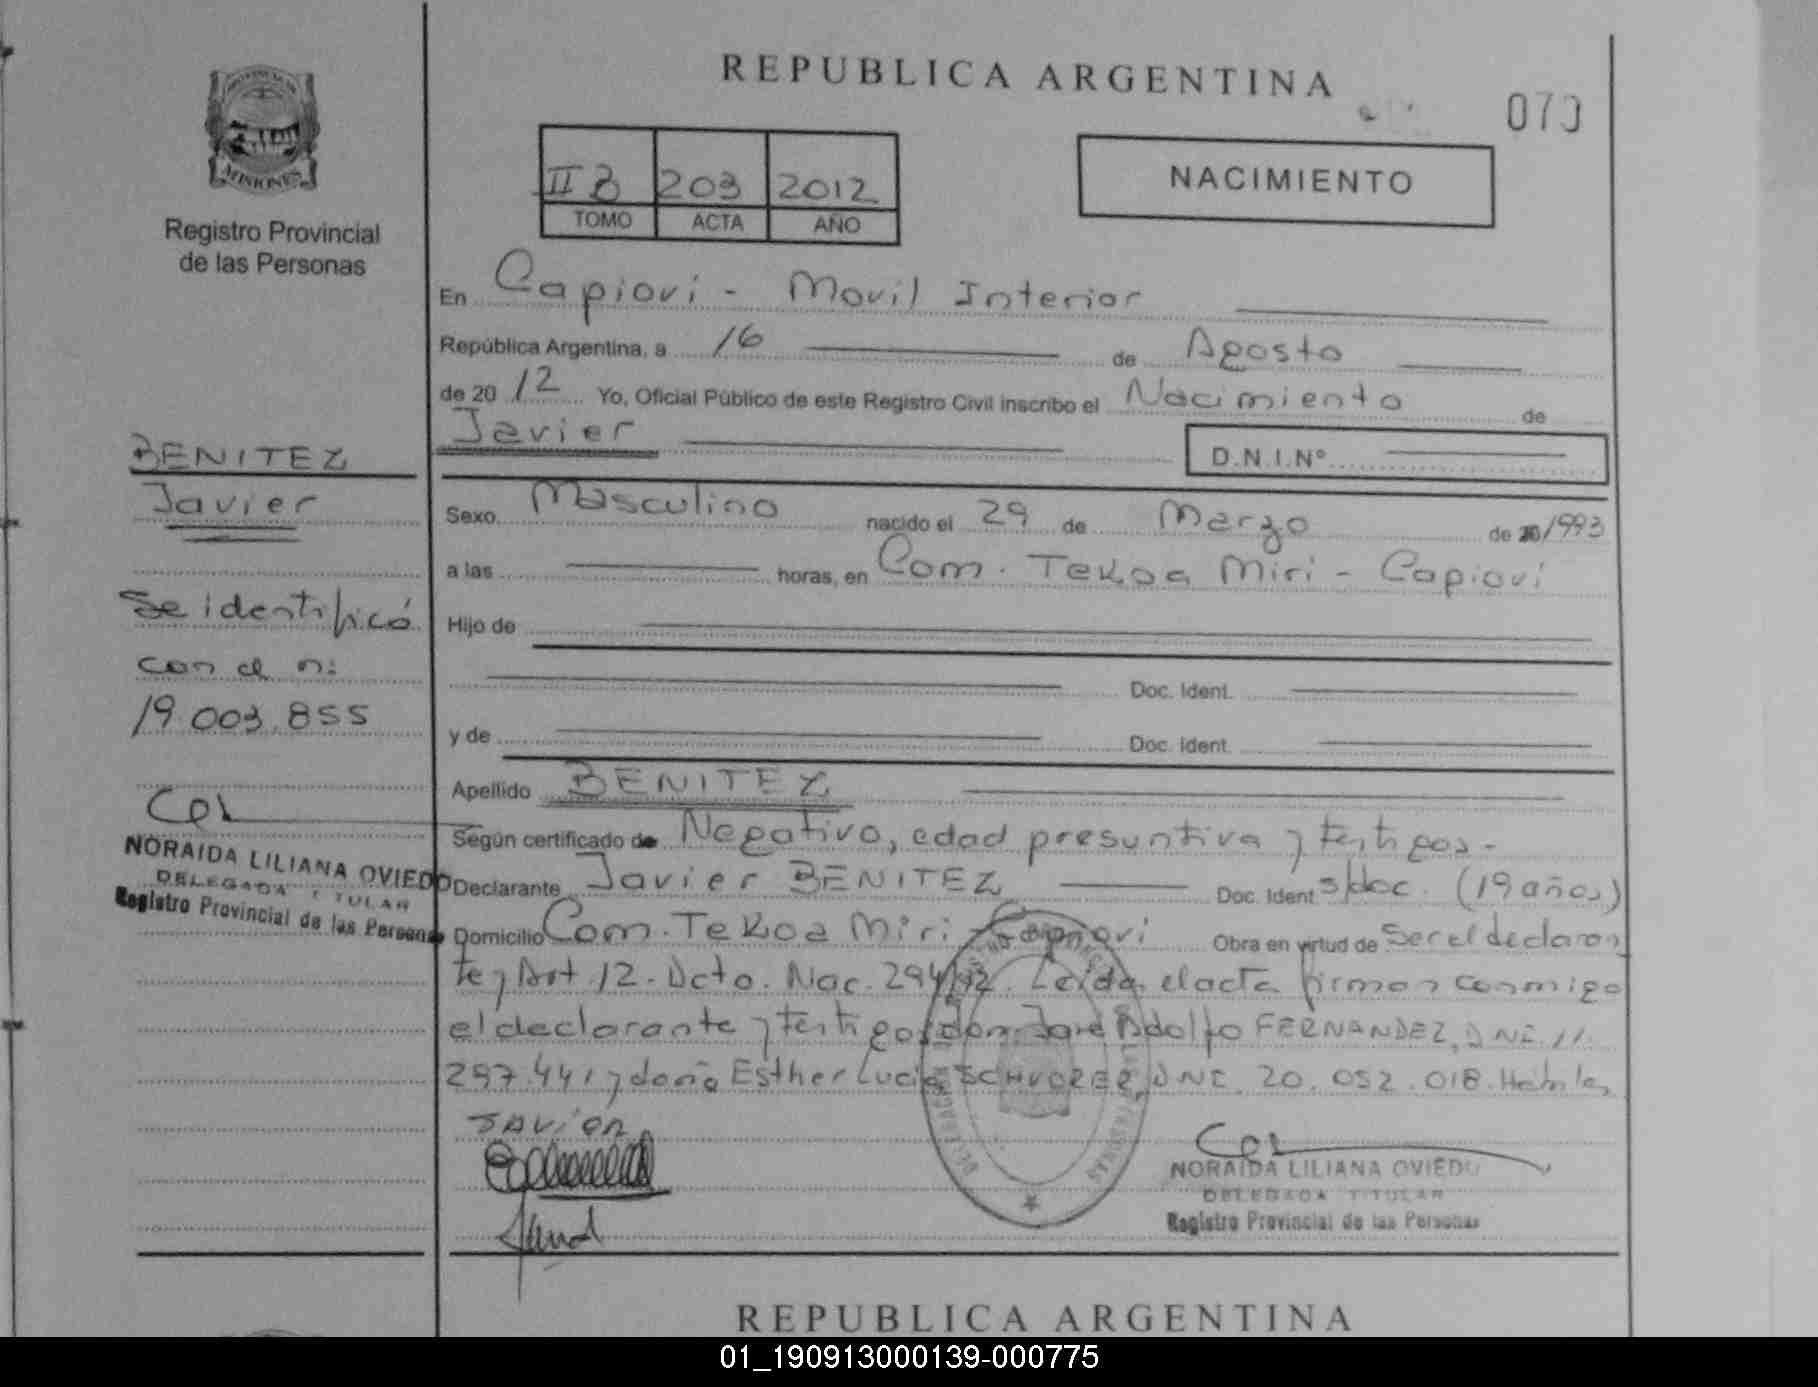 REPUBLICA ARGENTINA
070
MISIONES
Registro Provincial
de las Personas
II B 203 2012
TOMO ACTA AÑO
NACIMIENTO
En Capiovi - Movil Interior
República Argentina, a 16 de Agosto
de 20 12 Yo, Oficial Público de este Registro Civil inscribo el Nacimiento de
Javier
D.N.I.Nº
BENITEZ
Javier
Se identificó
con el n:
19.003.855
NORAIDA LILIANA OVIEDO
DELEGADA TITULAR
Registro Provincial de las Personas
Sexo Masculino nacido el 29 de Marzo de 1993
a las horas, en Com. Tekoa Miri - Capiovi
Hijo de
Doc. Ident.
y de Doc. Ident.
Apellido BENITEZ
Según certificado de Negativo, edad presuntiva y testigos-
Declarante Javier BENITEZ Doc. Ident s/doc. (19 años)
Domicilio Com. Tekoa Miri - Capiovi Obra en virtud de Ser el declaran
te y Art 12. Dcto. Nac. 294/92. Leída el acta firman conmigo
el declarante y testigos don José Adolfo FERNANDEZ, DNI 11.
297.441 y doña Esther Lucia DNI 20.052.018. Hábiles
JAViER
NORAIDA LILIANA OVIEDO
DELEGADA TITULAR
Registro Provincial de las Personas
REPUBLICA ARGENTINA
01_190913000139-000775